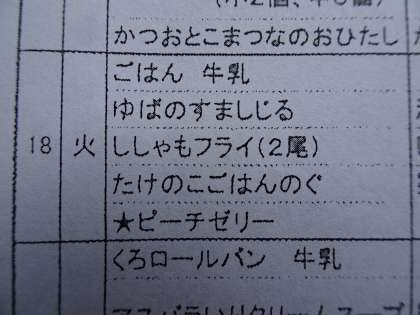 かつおとこまつなのおひたし
ごはん 牛乳
ゆばのすましじる
18 火 ししゃもフライ(2尾)
たけのこごはんのぐ
★ピーチゼリー
くろロールパン 牛乳